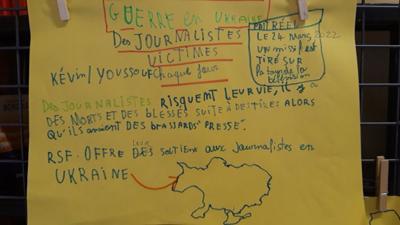 GUERRE en UKRAINE
Des JOURNALISTES
VICTIMES
Kévin/Youssouf chaque jour
EN BREF
LE 24 Mars 2022
UN missile est
TiRE SUR
La tour de la
télévision
Des JOURNALISTES RISQUENT LEUR VIE, il y a
DES MORTS ET DES BLESSES SUITE à DES TIRS ALORS
Qu'ils avaient DES BRASSARDS "PRESSE".
RSF. OFFRE DES SOUTIEN AUX JOURNALISTES EN
UKRAINE